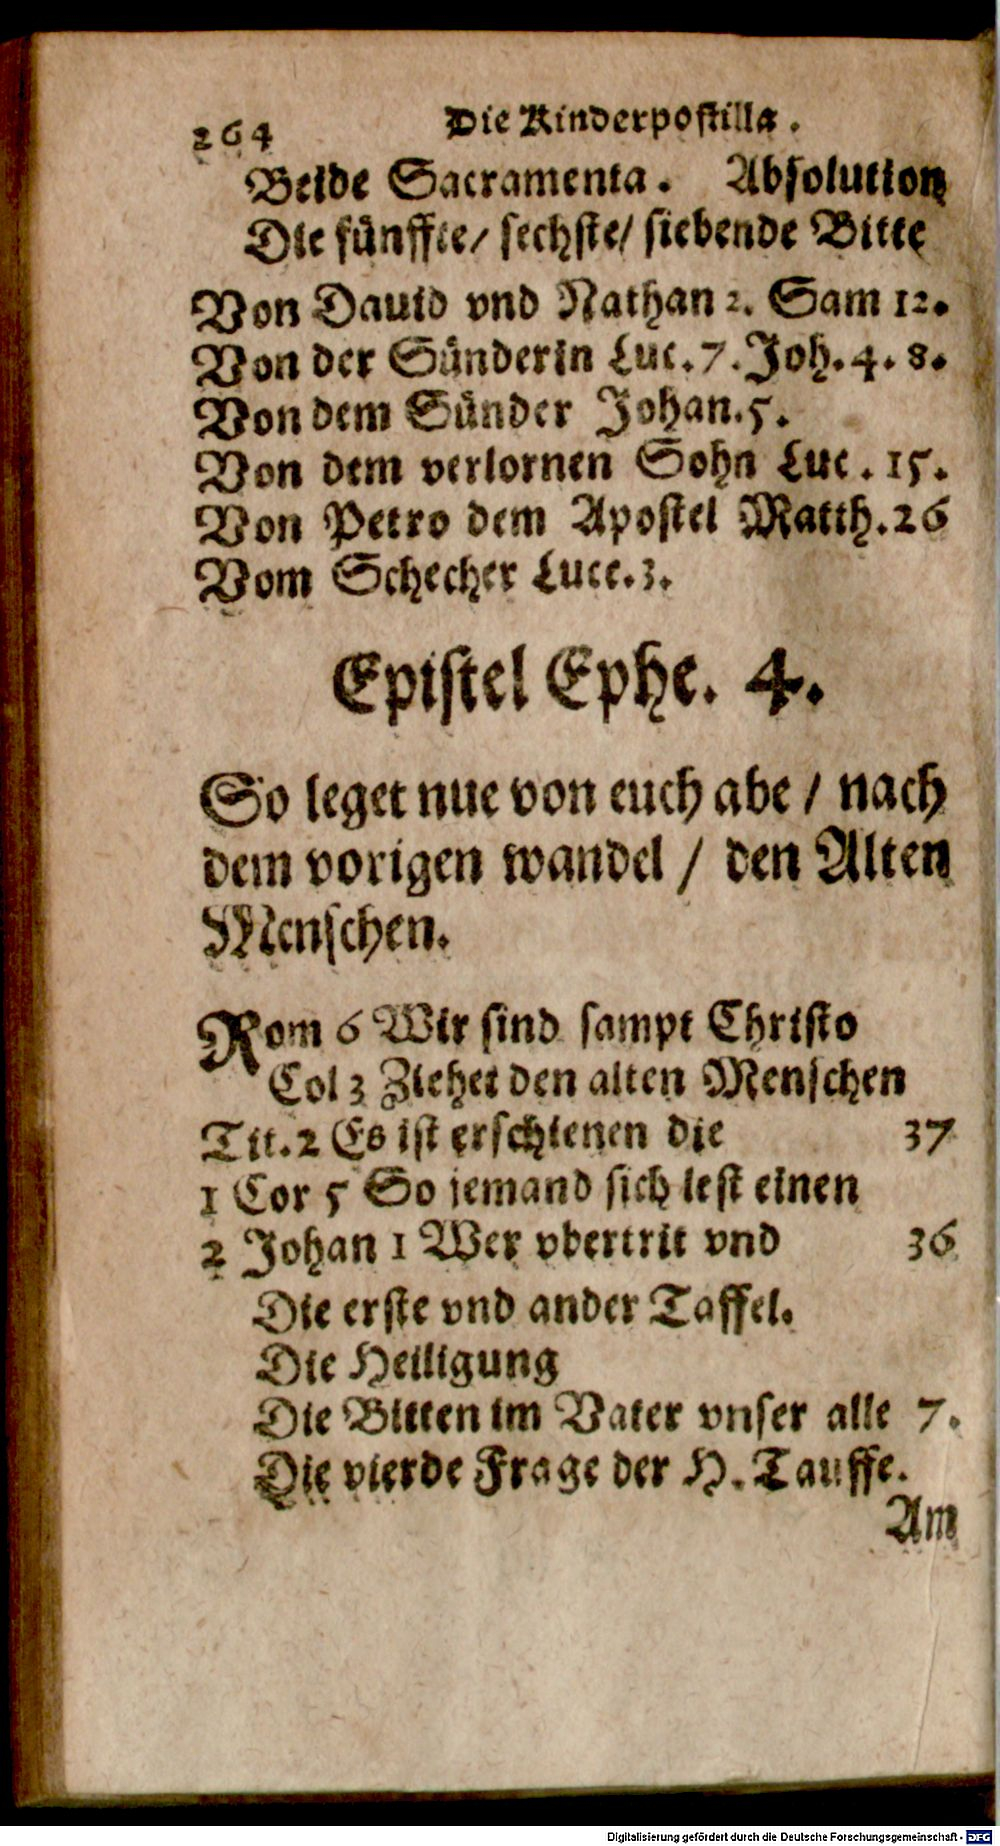 264 Die Kinderpostilla.
Beide Sacramenta. Absolution
Die fünffte/ sechste/ siebende Bitte
Von Dauid vnd Nathan 2. Sam 12.
Von der Sünderin Luc. 7. Joh. 4. 8.
Von dem Sünder Johan. 5.
Von dem verlornen Sohn Luc. 15.
Von Petro dem Apostel Matth. 26
Vom Schecher Luce. 3.
Epistel Ephe. 4.
So leget nue von euch abe / nach
dem vorigen wandel / den Alten
Menschen.
Rom 6 Wir sind sampt Christo
Col 3 Ziehet den alten Menschen
Tit. 2 Es ist erschienen die 37
1 Cor 5 So jemand sich lest einen
2 Johan 1 Wer vbertrit vnd 36
Die erste vnd ander Taffel.
Die Heiligung
Die Bitten im Vater vnser alle 7.
Die vierde Frage der H. Tauffe.
Am
Digitalisierung gefördert durch die Deutsche Forschungsgemeinschaft - DFG